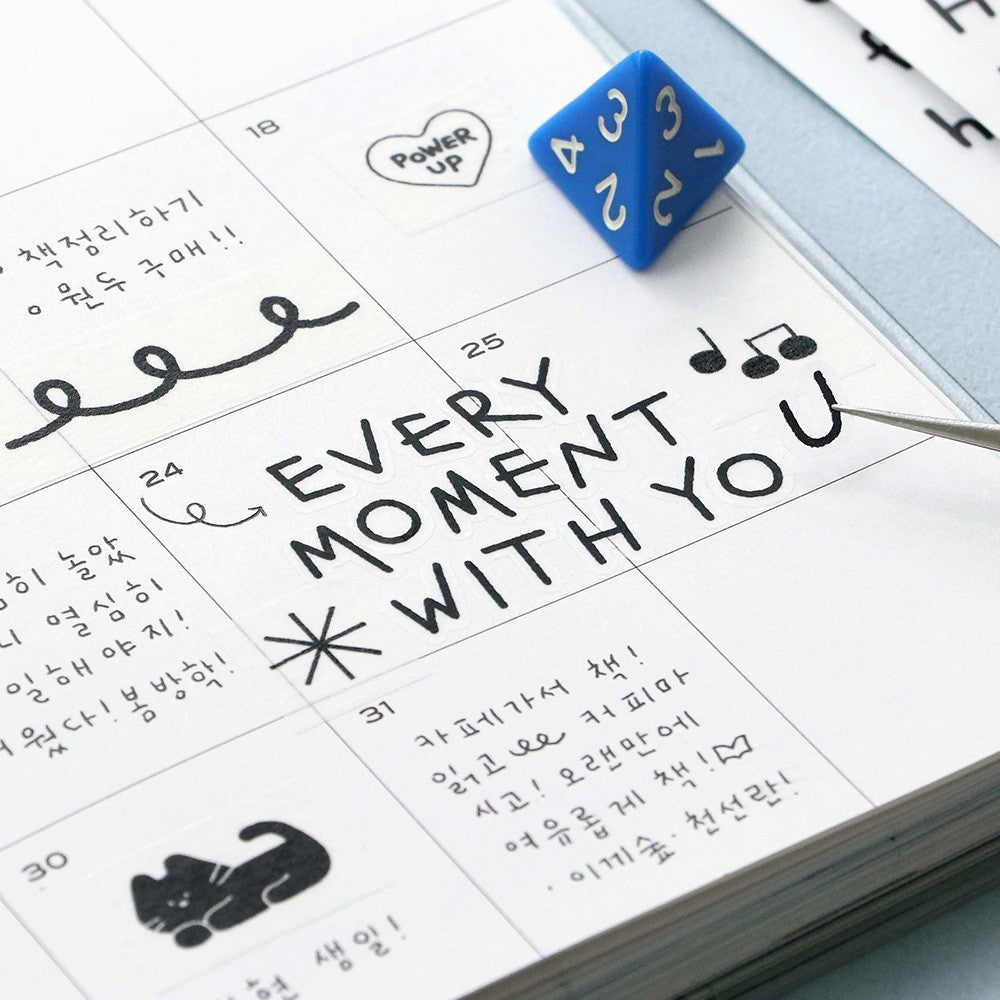 18
POWER
UP
책정리하기
원두 구매!!
4 3 3 1
2 2
25
24
EVERY
MOMENT
WITH YOU
히 놀았
열심히
일해야지!
웠다! 봄방학!
31
카페가서 책!
읽고 커피마
시고! 오랜만에
여유롭게 책!
· 이끼숲 · 천선란!
30
현 생일!
h